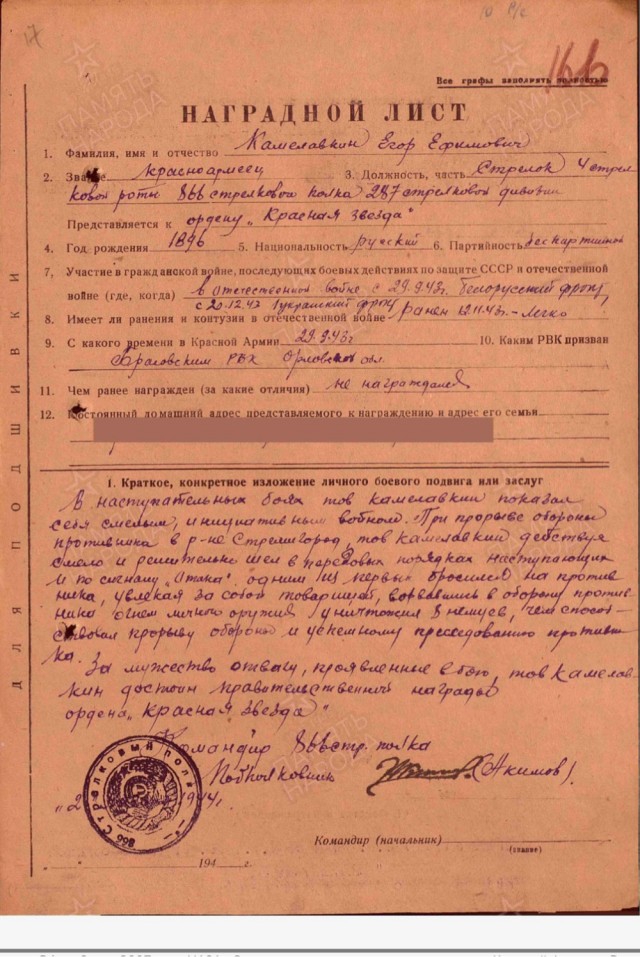 17
Все графы заполнять полностью
НАГРАДНОЙ ЛИСТ
1. Фамилия, имя и отчество Камелавкин Егор Ефимович
2. Звание красноармеец 3. Должность, часть Стрелок 4 стрел
ковой роты 866 стрелкового полка 287 стрелковой дивизии
Представляется к ордену „Красная звезда"
4. Год рождения 1896 5. Национальность русский 6. Партийность беспартийный
7. Участие в гражданской войне, последующих боевых действиях по защите СССР и отечественной
войне (где, когда) в отечественной войне с 29.9.43г. Белорусский фронт,
с 20.12.43 1 украинский фронт
8. Имеет ли ранения и контузии в отечественной войне ранен 12.11.43г.-легко
9. С какого времени в Красной Армии 29.9.43г 10. Каким РВК призван
РВК Орловской обл.
11. Чем ранее награжден (за какие отличия) не награждался
12. Постоянный домашний адрес представляемого к награждению и адрес его семьи
1. Краткое, конкретное изложение личного боевого подвига или заслуг
В наступательных боях тов Камелавкин показал
себя смелым, инициативным воином. При прорыве обороны
противника в р-не Стрелигород, тов Камелавкин действуя
смело и решительно шел в передовых порядках наступающих
и по сигналу „Атака" одним из первых бросился на против
ника, увлекая за собой товарищей, ворвавшись в оборону против
ника огнем личного оружия уничтожил 8 немцев, чем способ-
ствовал прорыву обороны и успешному преследованию противни
ка.
За мужество отвагу, проявленные в бою, тов Камелав
кин достоин правительственной награды
ордена „Красная звезда"
Командир 866 стр. полка
Подполковник (Акимов).
„2 1944г.
866 Стрелковый полк
Командир (начальник)
(звание)
194 г.
ДЛЯ ПОДШИВКИ
ПАМЯТЬ НАРОДА